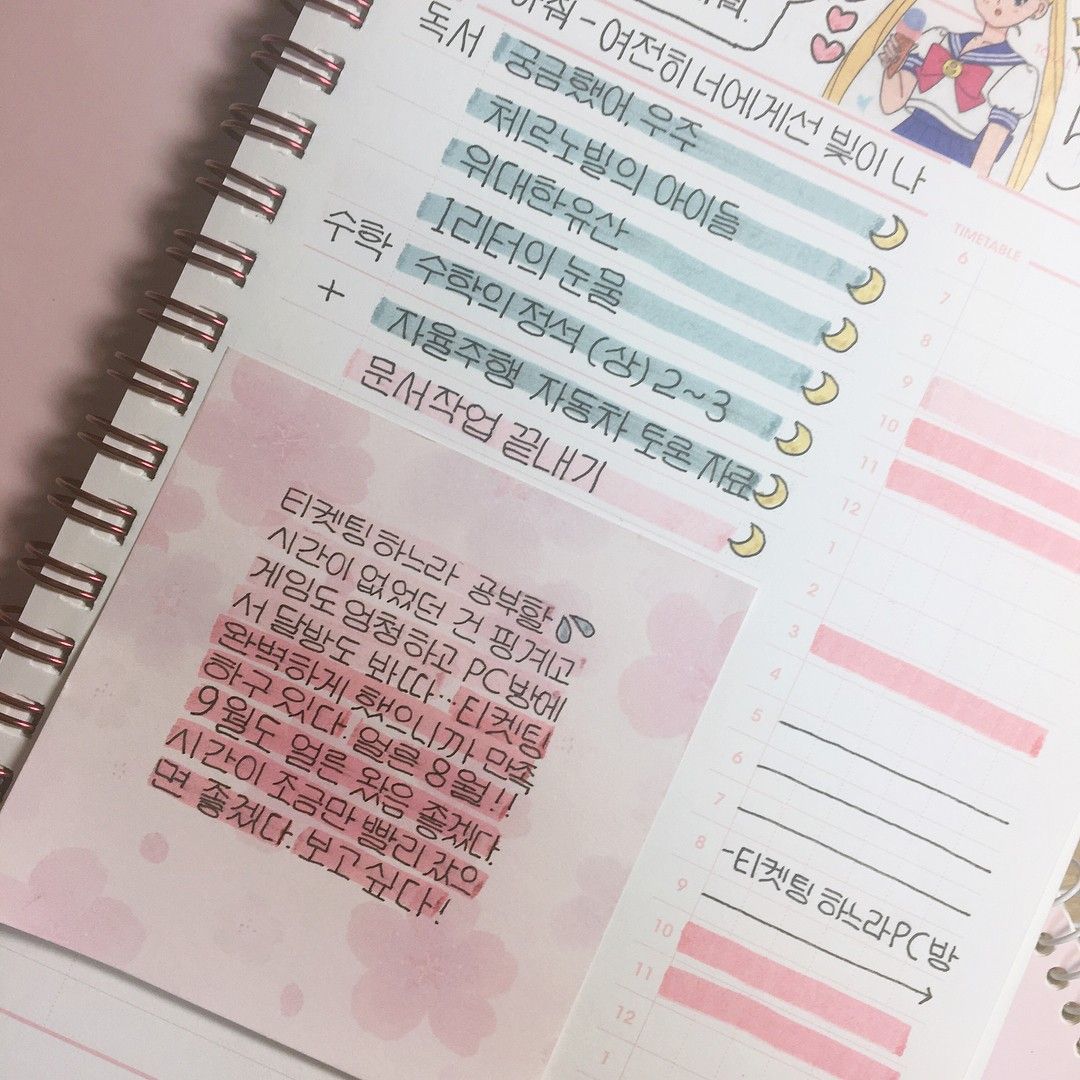 아줘 - 여전히 너에게선 빛이 나
독서 궁금했어, 우주
체르노빌의 아이들
위대한유산
1리터의 눈물
수학 수학의 정석 (상) 2~3
+ 자율주행 자동차 토론 자료
문서작업 끝내기
티켓팅 하느라 공부할
시간이 없었던 건 핑계고
게임도 엄청하고 PC방에
서 달방도 봐따.. 티켓팅
완벽하게 했으니까 만족
하구 있다. 얼른 8월!!
9월도 얼른 왔음 좋겠다.
시간이 조금만 빨리 갔으
면 좋겠다. 보고 싶다!!
TIMETABLE
6
7
8
9
10
11
12
1
2
3
4
5
6
7
8
-티켓팅 하느라 PC방
9
10
11
12
1